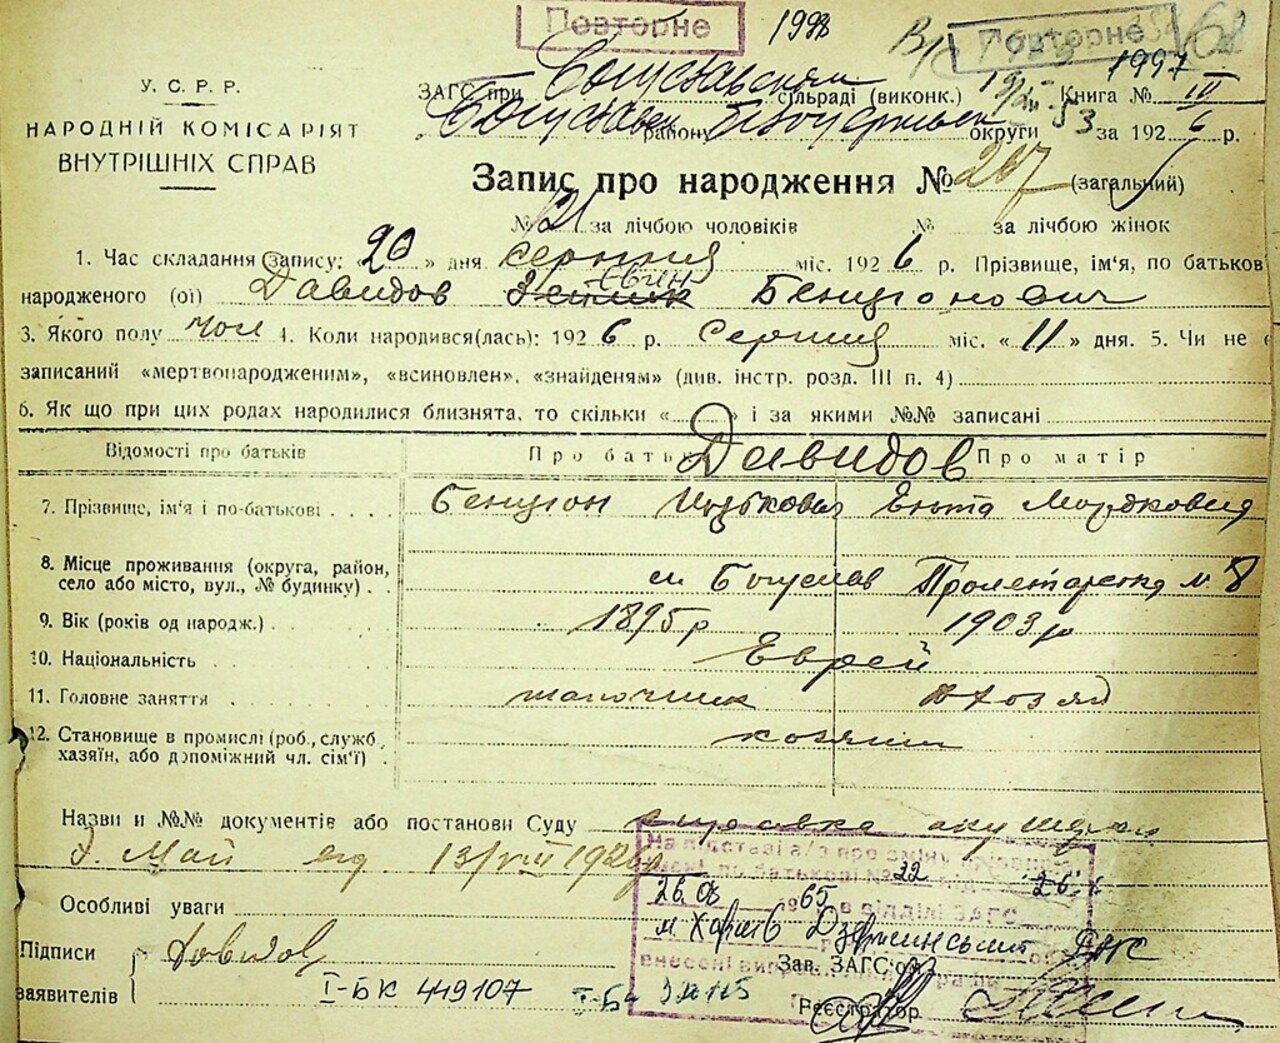 Повторне 1998 Повторне
1997
У. С. Р. Р.
НАРОДНІЙ КОМІСАРІЯТ
ВНУТРІШНІХ СПРАВ
ЗАГС при Богуславском сільраді (виконк.) Книга № IV
Богуславск району Білоцерківськ округи за 1926 р.
Запис про народження № 267 (загальний)
№ 121 за лічбою чоловіків № за лічбою жінок
1. Час складання запису: «20» дня серпня міс. 1926 р. Прізвище, ім'я, по батьков
Євген
народженого (ої) Давидов Бенционович
3. Якого полу чол 4. Коли народився(лась): 1926 р. Серпня міс. «11» дня. 5. Чи не є
записаний «мертвонародженим», «всиновлен», «знайденям» (див. інстр. розд. III п. 4)
6. Як що при цих родах народилися близнята, то скільки « » і за якими №№ записані
Відомості про батьків Про батьк Давидов Про матір
7. Прізвище, ім'я і по-батькові Бенцион Ицькович Ента Мордковна
8. Місце проживання (округа, район,
село або місто, вул., № будинку) м Богуслав Пролетарська № 8
9. Вік (років од народж.) 1895р 1903р
10. Національність Еврей
11. Головне заняття шапочник д/хозяй
12. Становище в промислі (роб., служб,
хазяїн, або допоміжний чл. сім'ї) хозяин
Назви и №№ документів або постанови Суду справка акушерки
від 13/VIII 1926р
На підставі а/з про зміну
імені, по батькові № 22 від 26
Особливі уваги
26.08 1965 в відділі ЗАГС
м Харків Дзержинський ЗАГС
Підписи Давидов
внесені виправлення Зав. ЗАГС'ом
заявителів І-БК 449107 І-БК
Реєстратор